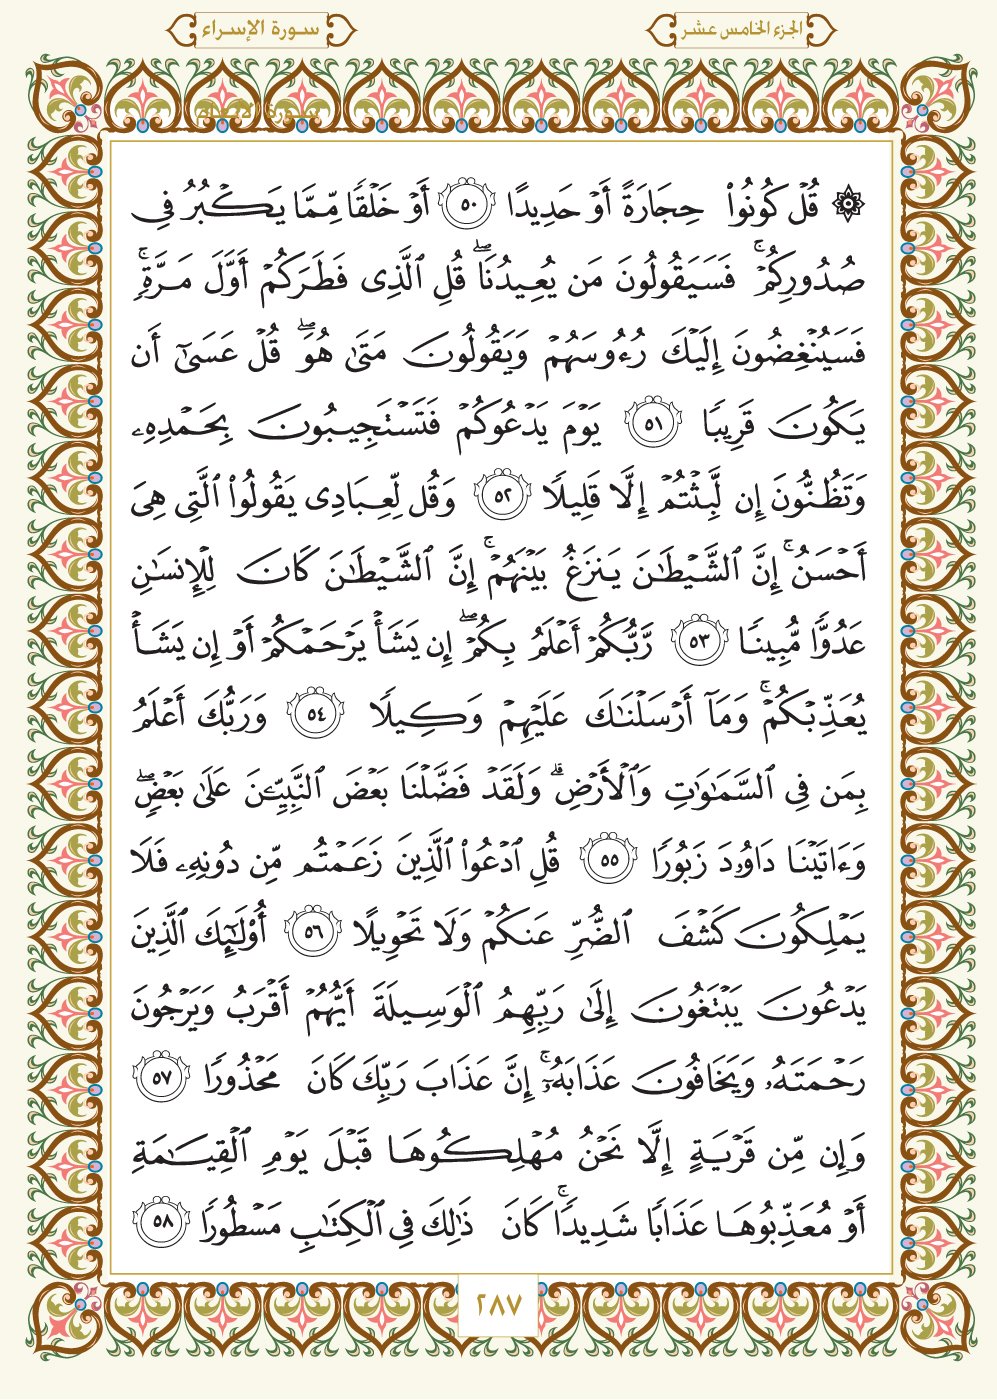 الجزء الخامس عشر
سورة الإسراء
۞ قُلْ كُونُوا۟ حِجَارَةً أَوْ حَدِيدًا ٥٠ أَوْ خَلْقًا مِّمَّا يَكْبُرُ فِى
صُدُورِكُمْ ۚ فَسَيَقُولُونَ مَن يُعِيدُنَا ۖ قُلِ ٱلَّذِى فَطَرَكُمْ أَوَّلَ مَرَّةٍ ۚ
فَسَيُنْغِضُونَ إِلَيْكَ رُءُوسَهُمْ وَيَقُولُونَ مَتَىٰ هُوَ ۖ قُلْ عَسَىٰٓ أَن
يَكُونَ قَرِيبًا ٥١ يَوْمَ يَدْعُوكُمْ فَتَسْتَجِيبُونَ بِحَمْدِهِۦ
وَتَظُنُّونَ إِن لَّبِثْتُمْ إِلَّا قَلِيلًا ٥٢ وَقُل لِّعِبَادِى يَقُولُوا۟ ٱلَّتِى هِىَ
أَحْسَنُ ۚ إِنَّ ٱلشَّيْطَٰنَ يَنزَغُ بَيْنَهُمْ ۚ إِنَّ ٱلشَّيْطَٰنَ كَانَ لِلْإِنسَٰنِ
عَدُوًّا مُّبِينًا ٥٣ رَّبُّكُمْ أَعْلَمُ بِكُمْ ۖ إِن يَشَأْ يَرْحَمْكُمْ أَوْ إِن يَشَأْ
يُعَذِّبْكُمْ ۚ وَمَآ أَرْسَلْنَٰكَ عَلَيْهِمْ وَكِيلًا ٥٤ وَرَبُّكَ أَعْلَمُ
بِمَن فِى ٱلسَّمَٰوَٰتِ وَٱلْأَرْضِ ۗ وَلَقَدْ فَضَّلْنَا بَعْضَ ٱلنَّبِيِّـۧنَ عَلَىٰ بَعْضٍ ۖ
وَءَاتَيْنَا دَاوُۥدَ زَبُورًا ٥٥ قُلِ ٱدْعُوا۟ ٱلَّذِينَ زَعَمْتُم مِّن دُونِهِۦ فَلَا
يَمْلِكُونَ كَشْفَ ٱلضُّرِّ عَنكُمْ وَلَا تَحْوِيلًا ٥٦ أُو۟لَٰٓئِكَ ٱلَّذِينَ
يَدْعُونَ يَبْتَغُونَ إِلَىٰ رَبِّهِمُ ٱلْوَسِيلَةَ أَيُّهُمْ أَقْرَبُ وَيَرْجُونَ
رَحْمَتَهُۥ وَيَخَافُونَ عَذَابَهُۥٓ ۚ إِنَّ عَذَابَ رَبِّكَ كَانَ مَحْذُورًا ٥٧
وَإِن مِّن قَرْيَةٍ إِلَّا نَحْنُ مُهْلِكُوهَا قَبْلَ يَوْمِ ٱلْقِيَٰمَةِ
أَوْ مُعَذِّبُوهَا عَذَابًا شَدِيدًا ۚ كَانَ ذَٰلِكَ فِى ٱلْكِتَٰبِ مَسْطُورًا ٥٨
٢٨٧